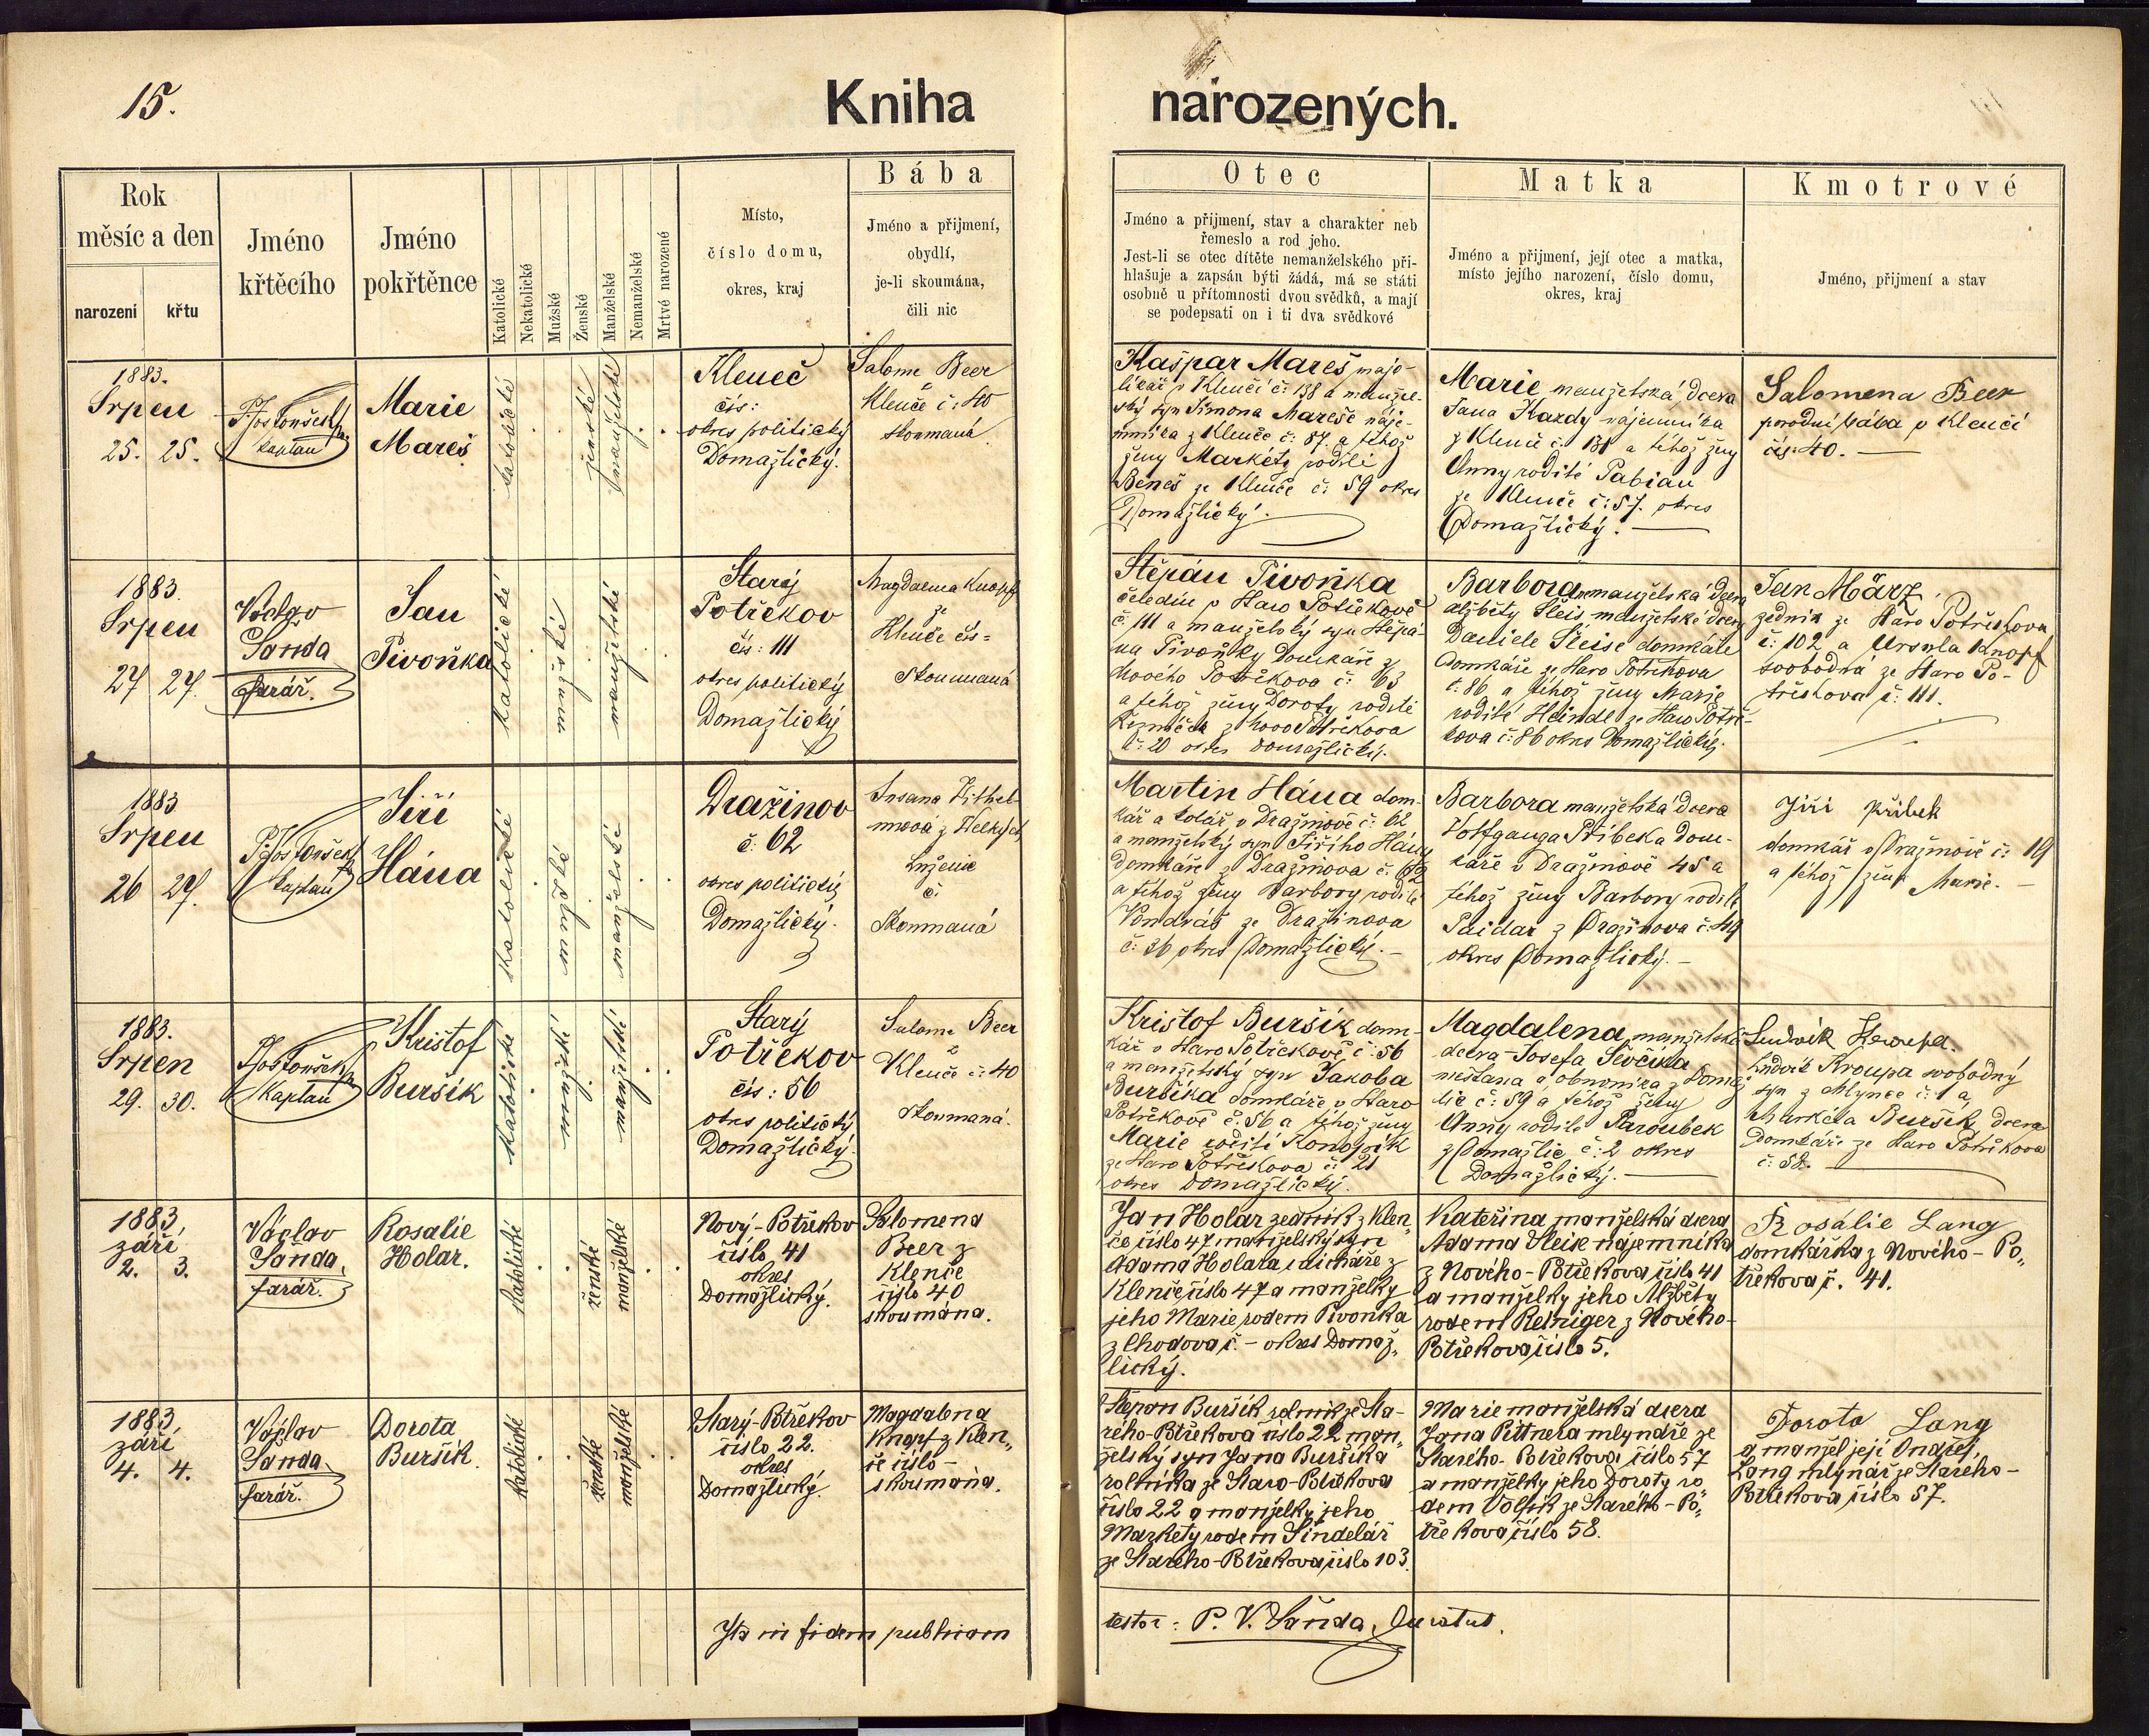 15.
Kniha
narozených.
Rok
měsíc a den
narozeni
křtu
Jméno
křtěcího
Jméno
pokřtěnce
Katolické
Nekatolické
Mužské
Ženské
Manželské
Nemanželské
Mrtvé narozené
Místo,
číslo domu,
okres, kraj
Bába
Jméno a přijmení,
obydlí,
je-li skoumána,
čili nic
Otec
Jméno a přijmení, stav a charakter neb
řemeslo a rod jeho.
Jest-li se otec dítěte nemanželského při-
hlašuje a zapsán býti žádá, má se státi
osobně u přítomnosti dvou svědků, a mají
se podepsati on i ti dva svědkové
Matka
Jméno a přijmení, její otec a matka,
místo jejího narození, číslo domu,
okres, kraj
Kmotrové
Jméno, přijmení a stav
1883.
Srpen
25. 25.
kaplan
Marie
Mareš
katolické
ženské
manželské
Kleneč
čís:
okres politický
Domažlický.
Salome Beer
Kleneče č: 40
skoumaná
Kašpar Mareš majo-
likář v Klenčí č: 138 a manžel-
ský syn Šimona Mareše náje-
mníka z Klenče č: 87. a téhož
ženy Markéty rodilé
Beneš ze Klenče č: 59 okres
Domažlický.
Marie manželská dcera
Jana Kardy nájemníka
z Klenče č: 131 a téhož ženy
Anny rodilé Pabian
ze Klenče č: 57. okres
Domažlický.
Salomena Beer
porodní bába v Klenčí
čís: 40.
1883.
Srpen
27 27.
Václav
Šanda
farář.
Jan
Pivoňka
katolické
manželské
Starý
Potřekov
čís: 111
okres politický
Domažlický
Magdalena Knopf
ze
Klenče čís=
Skoumaná
Štěpán Pivoňka
čeledín v Staro Potřekově
č: 111 a manželský syn Štěpá-
na Pivoňky domkáře z
Nového Potřekova č: 63
a téhož ženy Doroty rodilé
z Novo Potřekova
č: 20 okres domažlický.
Barbora nemanželská dcera
Alžběty Šleis, manželské dcery
Daniele Šleise domkáře
domkáře ze Staro Potřekova
č: 86 a téhož ženy Marie
rodilé Heindl ze Staro Potře-
kova č: 86 okres Domažlický.
Jan März,
zedník ze Staro Potřekova
č: 102 a Ursula Knopf
svobodná ze Staro Po-
třekova č: 111.
1883
Srpen
26 27.
kaplan
Jiří
Hána
katolické
manželské
Dražinov
č: 62
okres politický
Domažlický.
č.
Skoumaná
Martin Hána dom-
kář a kolář v Dražinově č: 62
a manželský syn Jiřího Hány
domkáře z Dražinova č: 62
a téhož ženy Barbory rodilé
Vondráš ze Dražinova
č: 36 okres Domažlický.-
Barbora manželská dcera
Wolfganga Přibeka dom-
káře v Dražinově 45 a
téhož ženy Barbory rodilé
Paidar z Dražinova č. 49
okres Domažlický.-
Jiří Přibek
domkář v Dražinově č: 19
a téhož žena Marie.-
1883.
Srpen
29. 30.
Kaplan
Kristof
Buršík
katolické
manželské
Starý
Potřekov
čís: 56
okres politický
Domažlický.
Salome Beer
z
Klenče č: 40
skoumaná.
Kristof Buršík dom-
kář v Staro Potřekově č: 56
a manželský syn Jakoba
Buršíka domkáře v Staro
Potřekově č. 56 a téhož ženy
Marie rodilé Konopík
ze Staro Potřekova č: 21
okres Domažlický.
Magdalena, manželská
dcera Josefa Ševčíka
měšťana a obuvníka z Domaž-
lic č: 59 a téhož ženy
Anny rodilé Paroubek
z Domažlic č: 2 okres
Domažlický.
Ludvík Kroupa.
Ludvík Kroupa svobodný
syn z Mlynce č: 1 a
Markéta Buršík, dcera
domkáře ze Staro Potřekova
č: 58.
1883,
září
2. 3.
Václav
Šanda,
farář.
Rosalie
Holar.
katolické
ženské
manželské
Nový-Potřekov
číslo 41
okres
Domažlický.
Salomena
Beer z
Klenče
číslo 40
skoumána.
Jan Holar zedník z Klen„
če číslo 47 manželský syn
Adama Holara z
Klenče číslo 47 a manželky
jeho Marie rodem Pivonka
z Chodova č. - okres Domaž„
lický.
Kateřina manželská dcera
Adama Šleis nájemníka
z Nového-Potřekova číslo 41
a manželky jeho Alžběty
rodem Reiniger z Nového-
Potřekova číslo 5.
Rosálie Lang
domkářka z Nového-Po„
třekova č. 41.
1883,
září
4. 4.
Václav
Šanda,
farář.
Dorota
Buršík.
katolické
ženské
manželské
Starý-Potřekov
číslo 22.
okres
Domažlický.
Magdalena
Knopf z Klen„
če číslo-
skoumána.
Štěpan Buršík rolník ze Sta-
rého-Potřekova číslo 22 man„
želský syn Jana Buršíka
rolníka ze Staro-Potřekova
číslo 22 a manželky jeho
Markéty rodem Šindelář
ze Starého-Potřekova číslo 103.
Marie manželská dcera
Jana Pittnera mlynáře ze
Starého-Potřekova číslo 57
a manželky jeho Doroty ro„
dem Volfík ze Starého-Po„
třekova číslo 58.
Dorota Lang
a manžel její Ondřej
Lang mlynář ze Starého-
Potřekova číslo 57.
Ita in fidem publicam
testor: P. V. Šanda, Curatus.